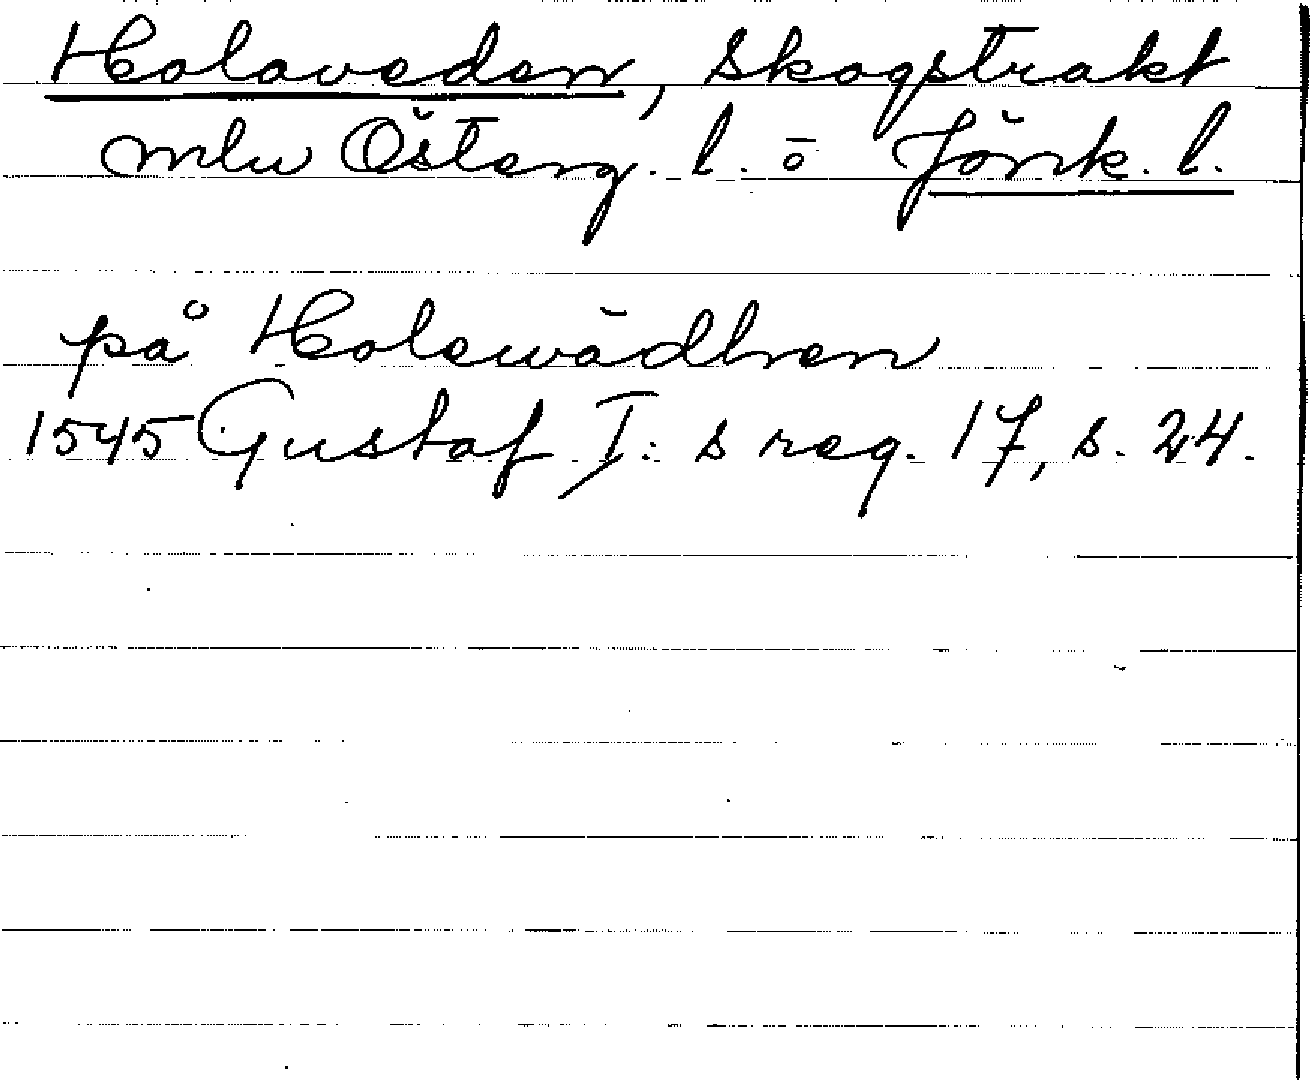 Holaveden, skogstrakt
mlu Österg. l. o Jönk. l.
på Holewädhen
1545 Gustaf I: s reg. 17, s. 24.